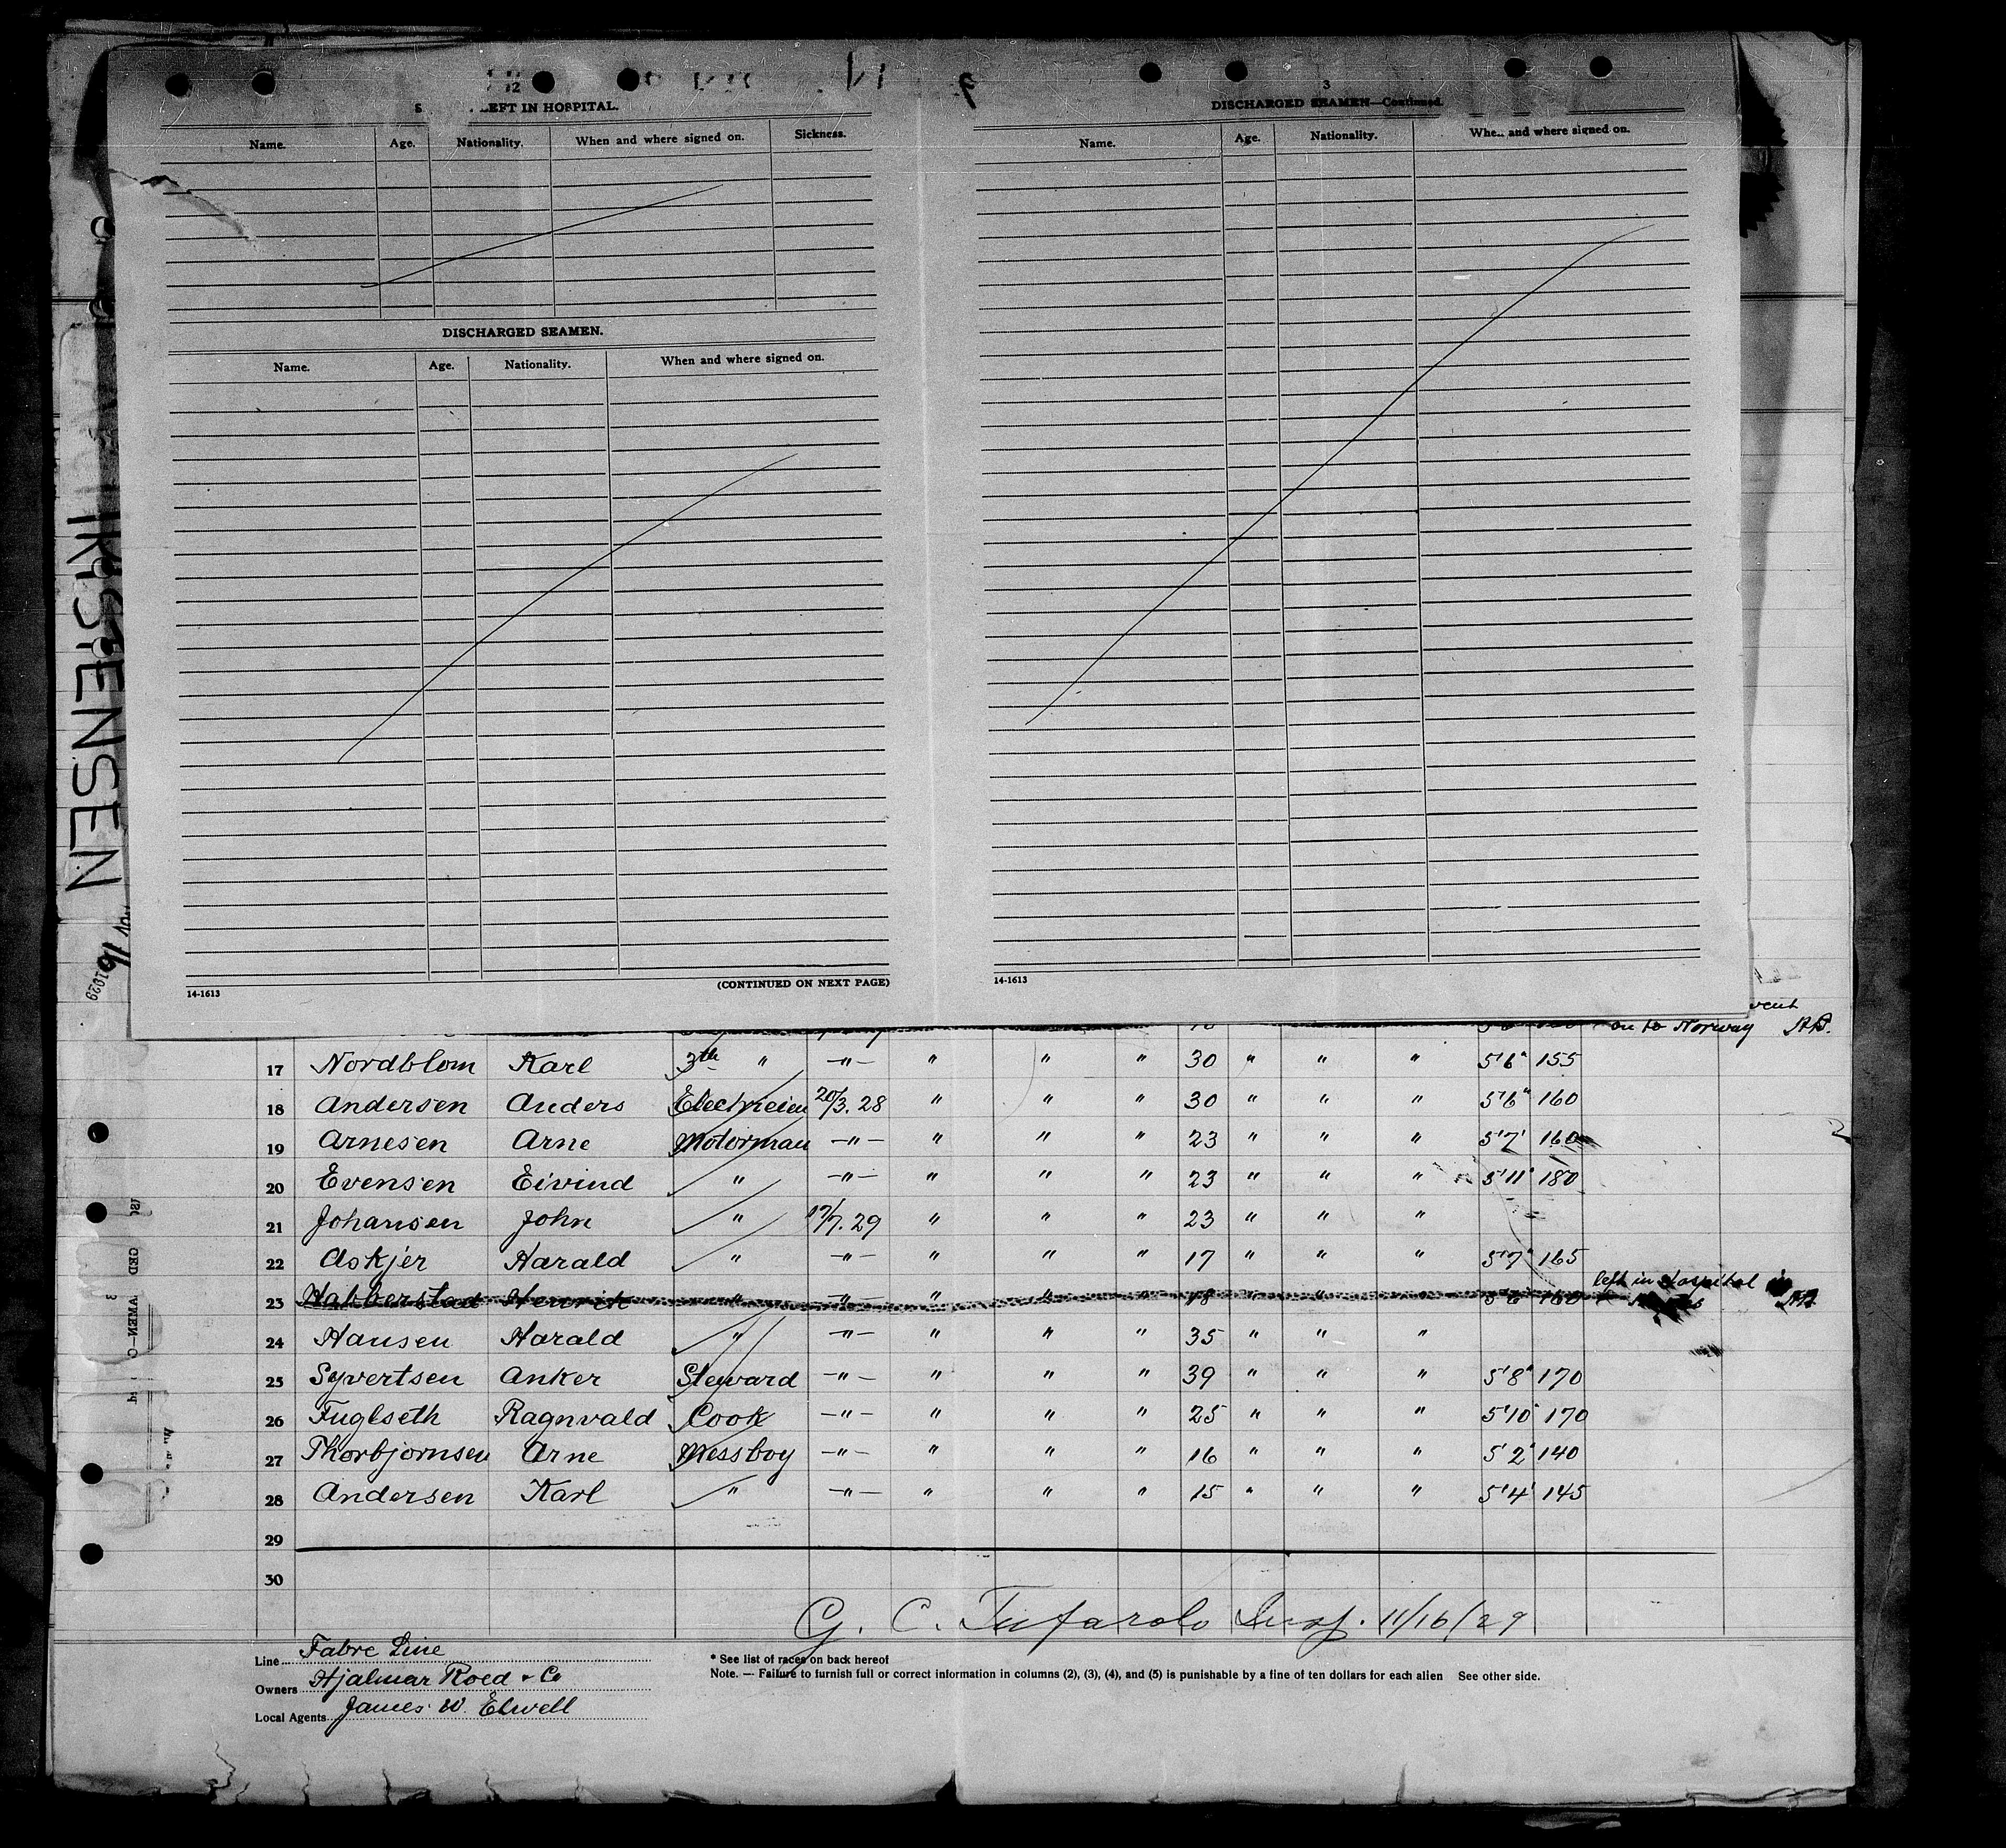 12
LEFT IN HOSPITAL.
Name. Age. Nationality. When and where signed on. Sickness.
DISCHARGED SEAMEN.
Name. Age. Nationality. When and where signed on.
14-1613
(CONTINUED ON NEXT PAGE)
3
DISCHARGED SEAMEN—Continued.
Name. Age. Nationality. When and where signed on.
14-1613
on to Norway
17 Nordblom Karl 3th " —"— " " " 30 " " " 5'6" 155
18 Andersen Anders Electricien 20/3.28 " " " 30 " " " 5'6" 160
19 Arnesen Arne Motorman —"— " " " 23 " " " 5'7" 160
20 Evensen Eivind " —"— " " " 23 " " " 5'11" 180
21 Johansen John " 17/7.29 " " " 23 " " "
22 Askjer Harald " —"— " " " 17 " " " 5'7" 165
left in Hospital in
23 Habberstad Henrik " —"— " " " 18 " " " 5'6" 160
24 Hansen Harald " —"— " " " 35 " " "
25 Syvertsen Anker Steward —"— " " " 39 " " " 5'8" 170
26 Fuglseth Ragnvald Cook —"— " " " 25 " " " 5'10" 170
27 Thorbjornsen Arne Messboy —"— " " " 16 " " " 5'2" 140
28 Andersen Karl " —"— " " " 15 " " " 5'4" 145
29
30
G. C. Tufarolo Insp. 11/16/29
Line Fabre Line
Owners Hjalmar Roed & Co
Local Agents James W. Elwell
* See list of races on back hereof
Note. — Failure to furnish full or correct information in columns (2), (3), (4), and (5) is punishable by a fine of ten dollars for each alien See other side.